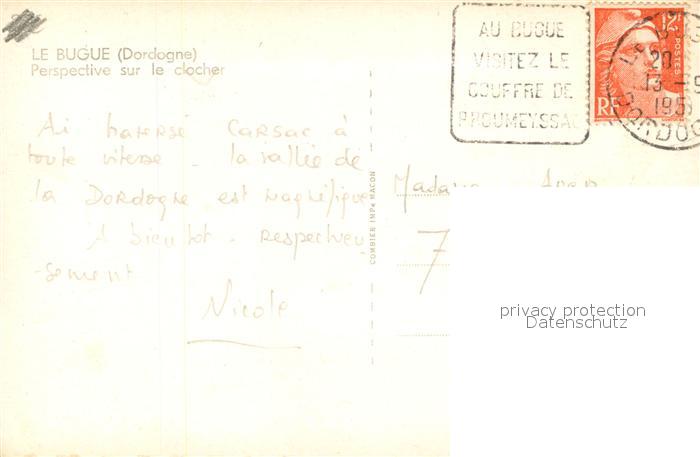 LE BUGUE (Dordogne)
Perspective sur le clocher
AU BUGUE
VISITEZ LE
GOUFFRE DE
PROUMEYSSAC
12F
POSTES
RF
13 -9
195
DORDOG
Ai traversé CARSAC à
toute vitesse - la vallée de
la DORDOGNE est magnifique
A bientôt - respectueu
-sement
Nicole
COMBIER IMP. MACON
Madame
7
privacy protection
Datenschutz